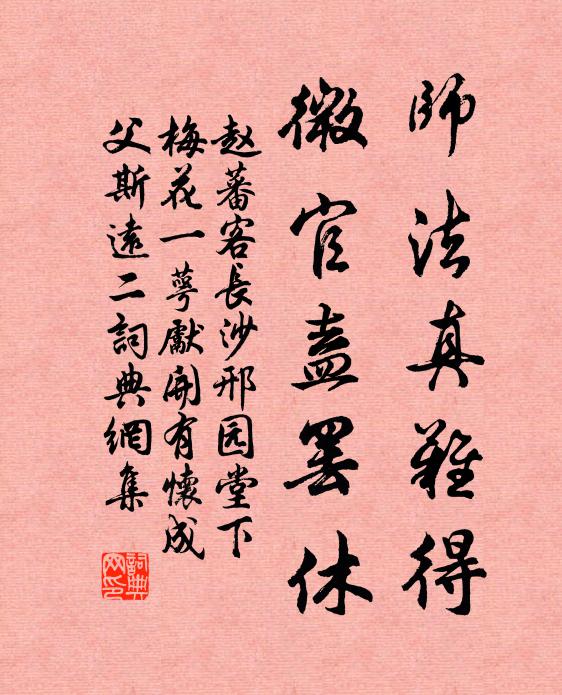 師法真難得
微官盍罷休
赵蕃客長沙邢园堂下
梅花一萼獻開有懷成
父斯遠二詞典網集
詞典网印